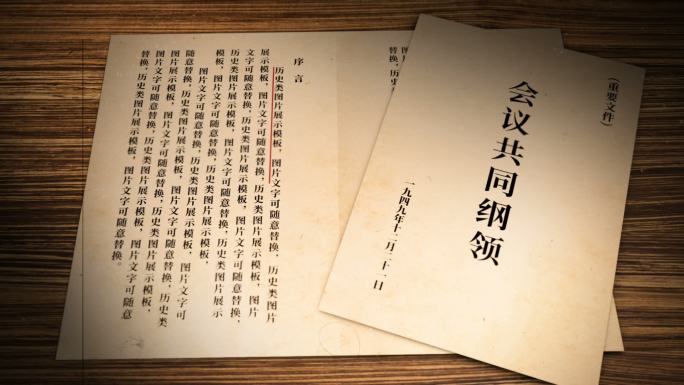 （重要文件）
会议共同纲领
一九四九年十二月二十一日
替换，历史
序言
历史类图片展示模板，图片文字可随意替换，历史类图片
展示模板，图片文字可随意替换，历史类图片展示模板，图片
文字可随意替换，历史类图片展示模板，图片文字可随意替换，
模板，历史类图片展示模板，图片文字可随意替换，历史类图片展示
图片文字可随意替换，历史类图片展示模板，
随意替换，历史类图片展示模板，图片文字可
图片展示模板，图片文字可随意替换，历史类图片展示模板，
图片文字可随意替换，历史类图片展示模板，图片文字可随意
替换，历史类图片展示模板，图片文字可随意替换。